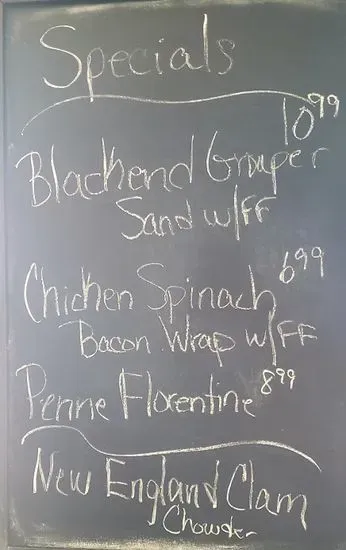 Specials
10.99
Blackend Grouper
Sand w/FF
6.99
Chicken Spinach
Bacon Wrap w/FF
Penne Florentine 8.99
New England Clam
Chowder